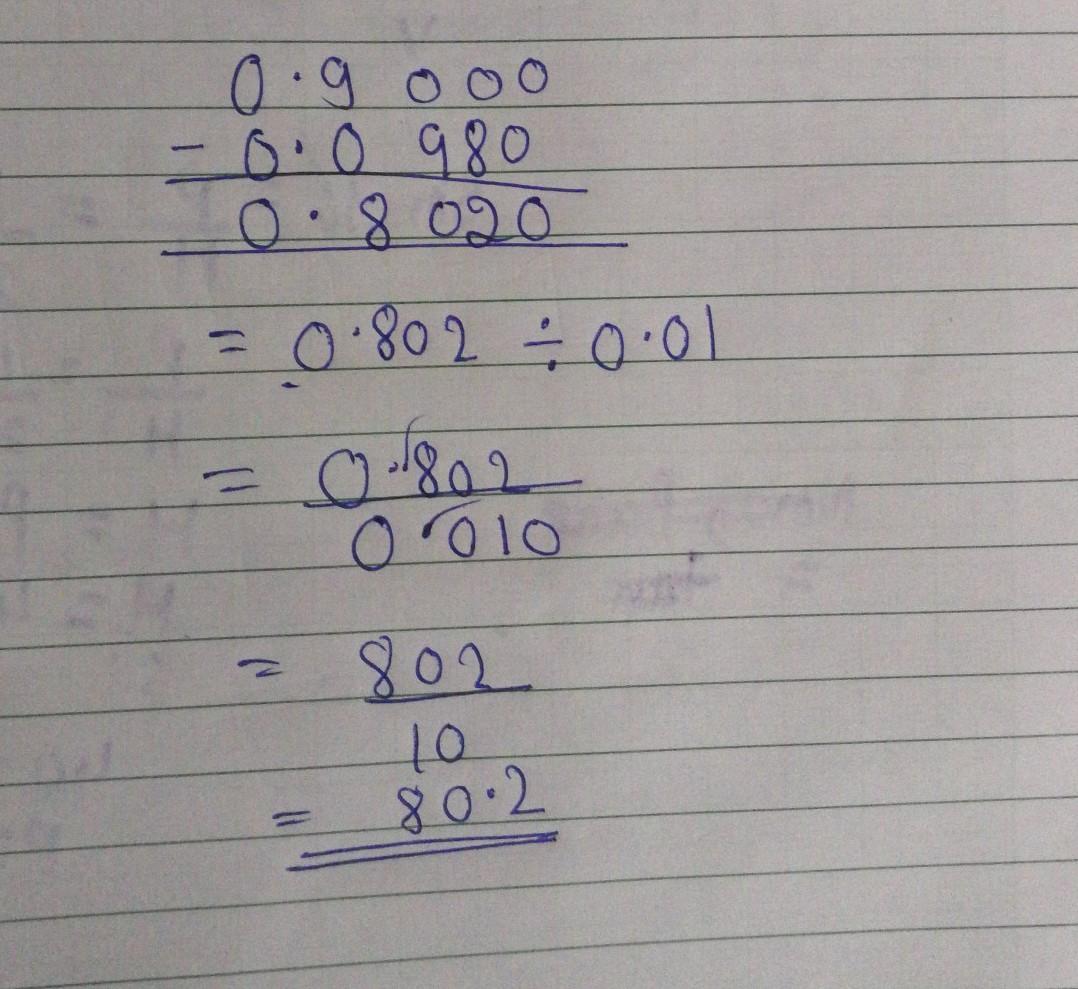 0.9 000
- 0.0 980
0.8020
= 0.802 ÷ 0.01
= 0.802
0.010
= 802
10
= 80.2